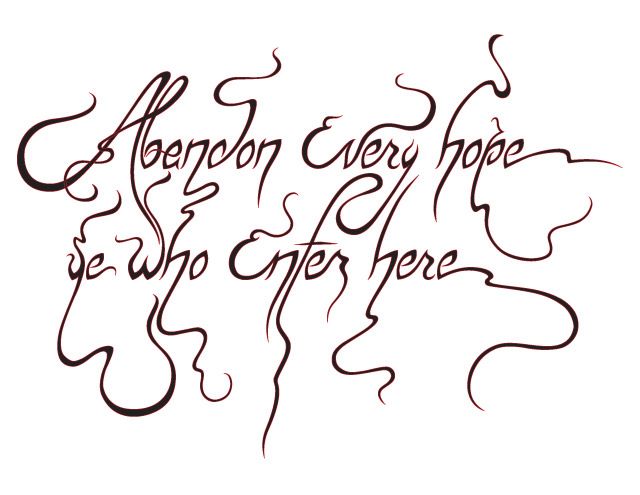 Abandon Every hope
ye who Enter here